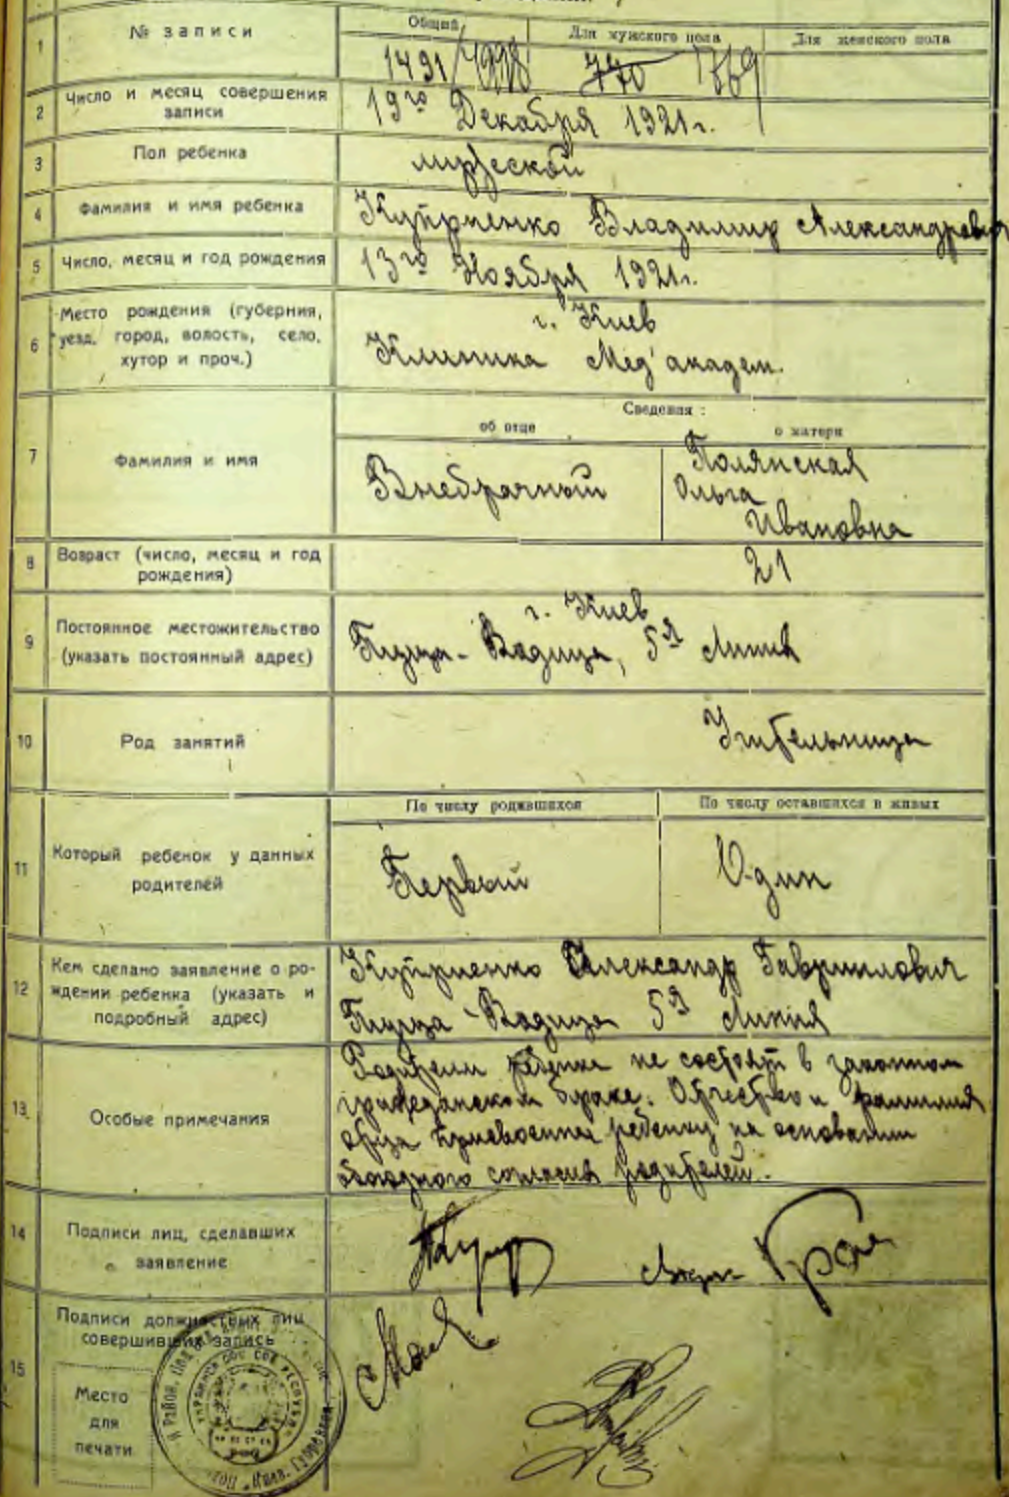 1
№ записи
Общий
Для мужского пола
Для женского пола
1491
770
2
Число и месяц совершения
записи
19го Декабря 1921г.
3
Пол ребенка
мужеской
4
Фамилия и имя ребенка
Куприенко Владимир Александрович
5
Число, месяц и год рождения
13го Ноября 1921г.
6
Место рождения (губерния,
уезд, город, волость, село,
хутор и проч.)
г. Киев
Клиника Мед'академ.
7
Фамилия и имя
Сведения:
об отце
о матери
Внебрачный
Полянская
Ольга
Ивановна
8
Возраст (число, месяц и год
рождения)
21
9
Постоянное местожительство
(указать постоянный адрес)
г. Киев
Пуща-Водица, 5я Линия
10
Род занятий
Учительница
11
Который ребенок у данных
родителей
По числу родившихся
По числу оставшихся в живых
Первый
Один
12
Кем сделано заявление о ро-
ждении ребенка (указать и
подробный адрес)
Куприенко Александр Гавриилович
Пуща-Водица 5я Линия
13
Особые примечания
Родители ребенка не состоят в законном
гражданском браке. Отчество и фамилия
отца присвоены ребенку на основании
согласия родителей.
14
Подписи лиц, сделавших
заявление
15
Подписи должностных лиц
совершивших запись
Место
для
печати